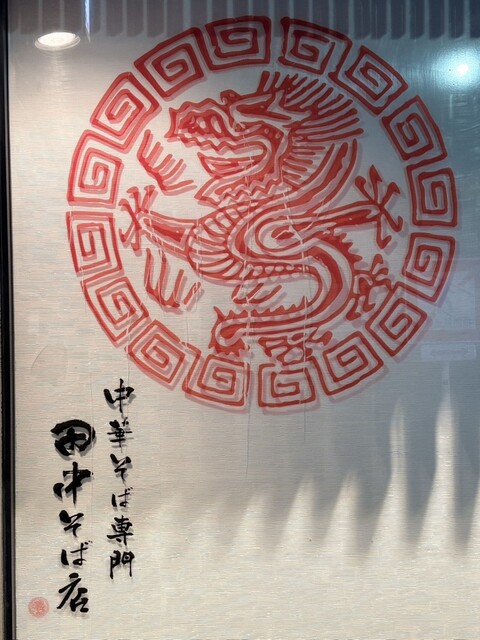 中華そば専門
田中そば店